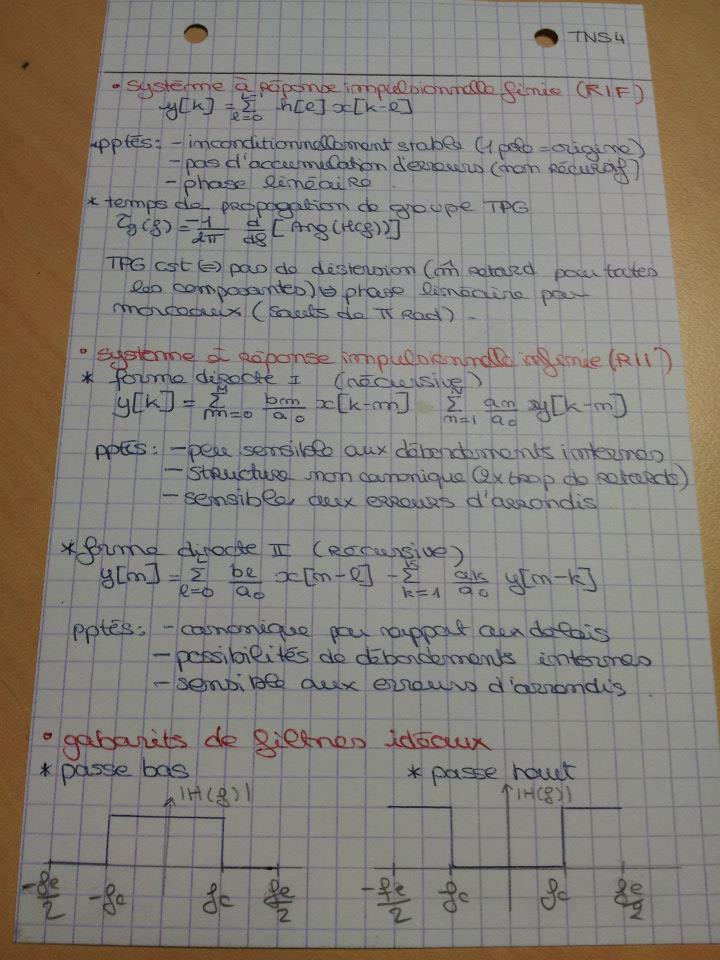 TNS4
• système à réponse impulsionnelle finie (RIF)
y[k] = Σ_{l=0} h[l] x[k-l]
pptés: - inconditionnellement stables (1 pôle = origine)
- pas d'accumulation d'erreurs (non récursif)
- phase linéaire.
* temps de propagation de groupe TPG
τg(f) = -1/2π d/df [Arg(H(f))]
TPG cst ⇔ pas de distorsion (m̂ retard pour toutes
les composantes) ⇔ phase linéaire par
morceaux (sauts de π rad).
• système à réponse impulsionnelle infinie (RII)
* forme directe I (récursive)
y[k] = Σ_{m=0} bm/a0 x[k-m] Σ_{m=1} am/a0 y[k-m]
pptés: - peu sensible aux débordements internes
- structure non canonique (2x trop de retards)
- sensible aux erreurs d'arrondis
* forme directe II (récursive)
y[n] = Σ_{l=0} bl/a0 x[n-l] - Σ_{k=1} ak/a0 y[n-k]
pptés: - canonique par rapport aux délais
- possibilités de débordements internes
- sensible aux erreurs d'arrondis.
• gabarits de filtres idéaux
* passe bas * passe haut
|H(f)| |H(f)|
-fe/2 -fc fc fe/2 -fe/2 fc fc fe/2